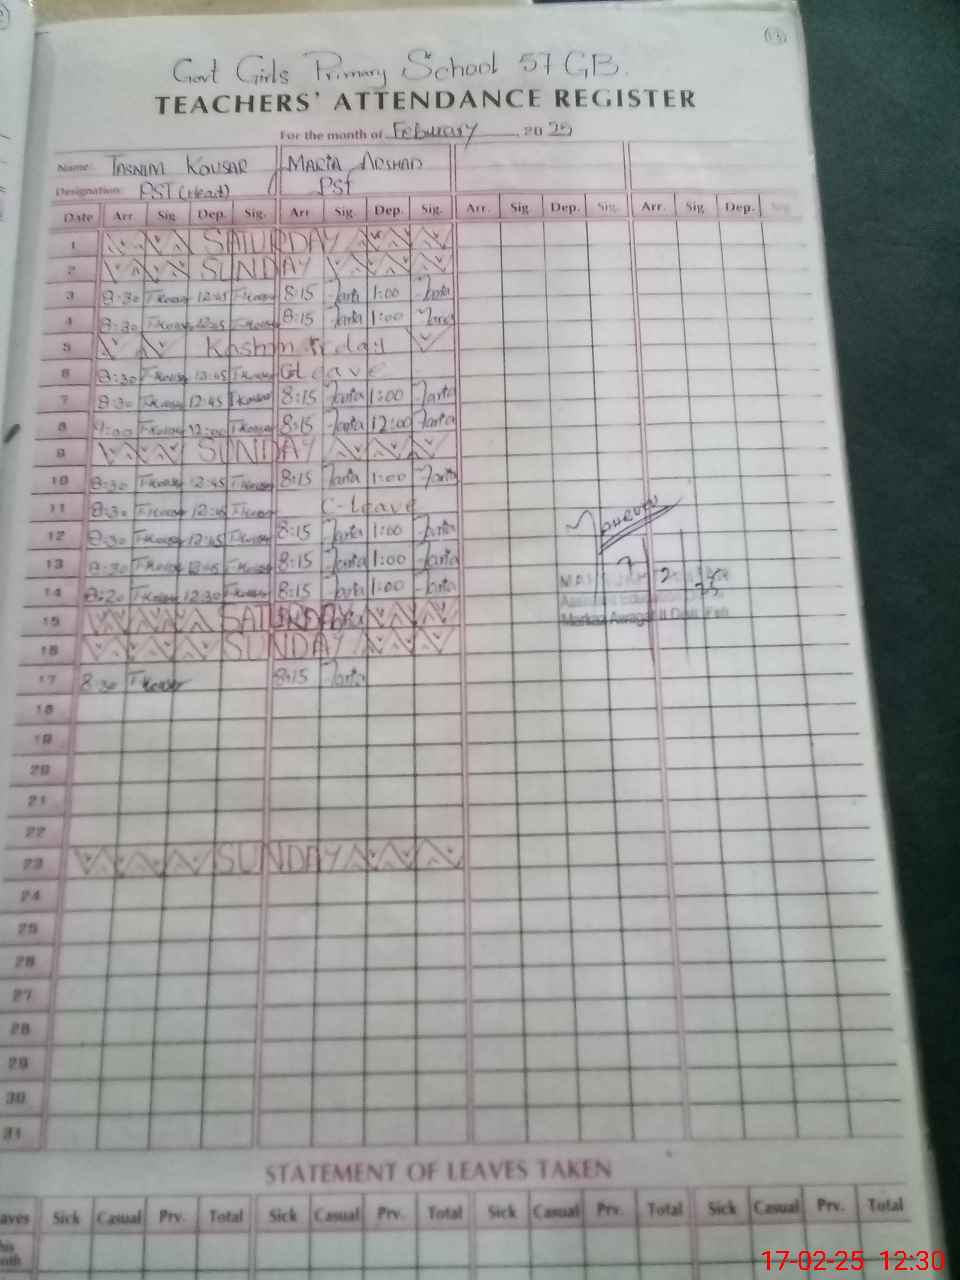 Govt Girls Primary School 57 GB.
TEACHERS' ATTENDANCE REGISTER
For the month of Febuary, 2025
Name: TASNIM KOUSAR MARIA ARSHAD
Designation: PST (Head) PST
Date Arr. Sig. Dep. Sig. Arr Sig. Dep. Sig. Arr. Sig Dep. Sig. Arr. Sig. Dep.
1 SATURDAY
2 SUNDAY
3 8:30 TKousar 12:45 TKousar 8:15 Maria 1:00 Maria
4 8:30 TKousar 12:45 TKousar 8:15 Maria 1:00 Maria
5 Kashmir day
6 8:30 TKousar 12:45 TKousar Leave
7 8:30 TKousar 12:45 TKousar 8:15 Maria 1:00 Maria
8 9:00 TKousar 12:00 TKousar 8:15 Maria 12:00 Maria
9 SUNDAY
10 8:30 TKousar 12:45 TKousar 8:15 Maria 1:00 Maria
11 8:30 TKousar 12:45 TKousar C-Leave
12 8:30 TKousar 12:45 TKousar 8:15 Maria 1:00 Maria
13 8:30 TKousar 12:45 TKousar 8:15 Maria 1:00 Maria
14 8:20 TKousar 12:30 TKousar 8:15 Maria 1:00 Maria
Assistant Education
Markaz
15 SATURDAY
16 SUNDAY
17 8:30 TKousar 8:15 Maria
18
19
20
21
22
23 SUNDAY
24
25
26
27
28
29
30
31
STATEMENT OF LEAVES TAKEN
Sick Casual Prv. Total Sick Casual Prv. Total Sick Casual Prv. Total Sick Casual Prv. Total
17-02-25 12:30